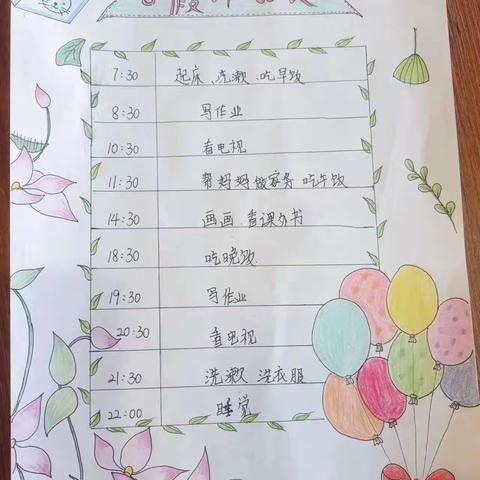 7:30 起床、洗漱、吃早饭
8:30 写作业
10:30 看电视
11:30 帮妈妈做家务 吃午饭
14:30 画画、看课外书
18:30 吃晚饭
19:30 写作业
20:30 看电视
21:30 洗漱 洗衣服
22:00 睡觉